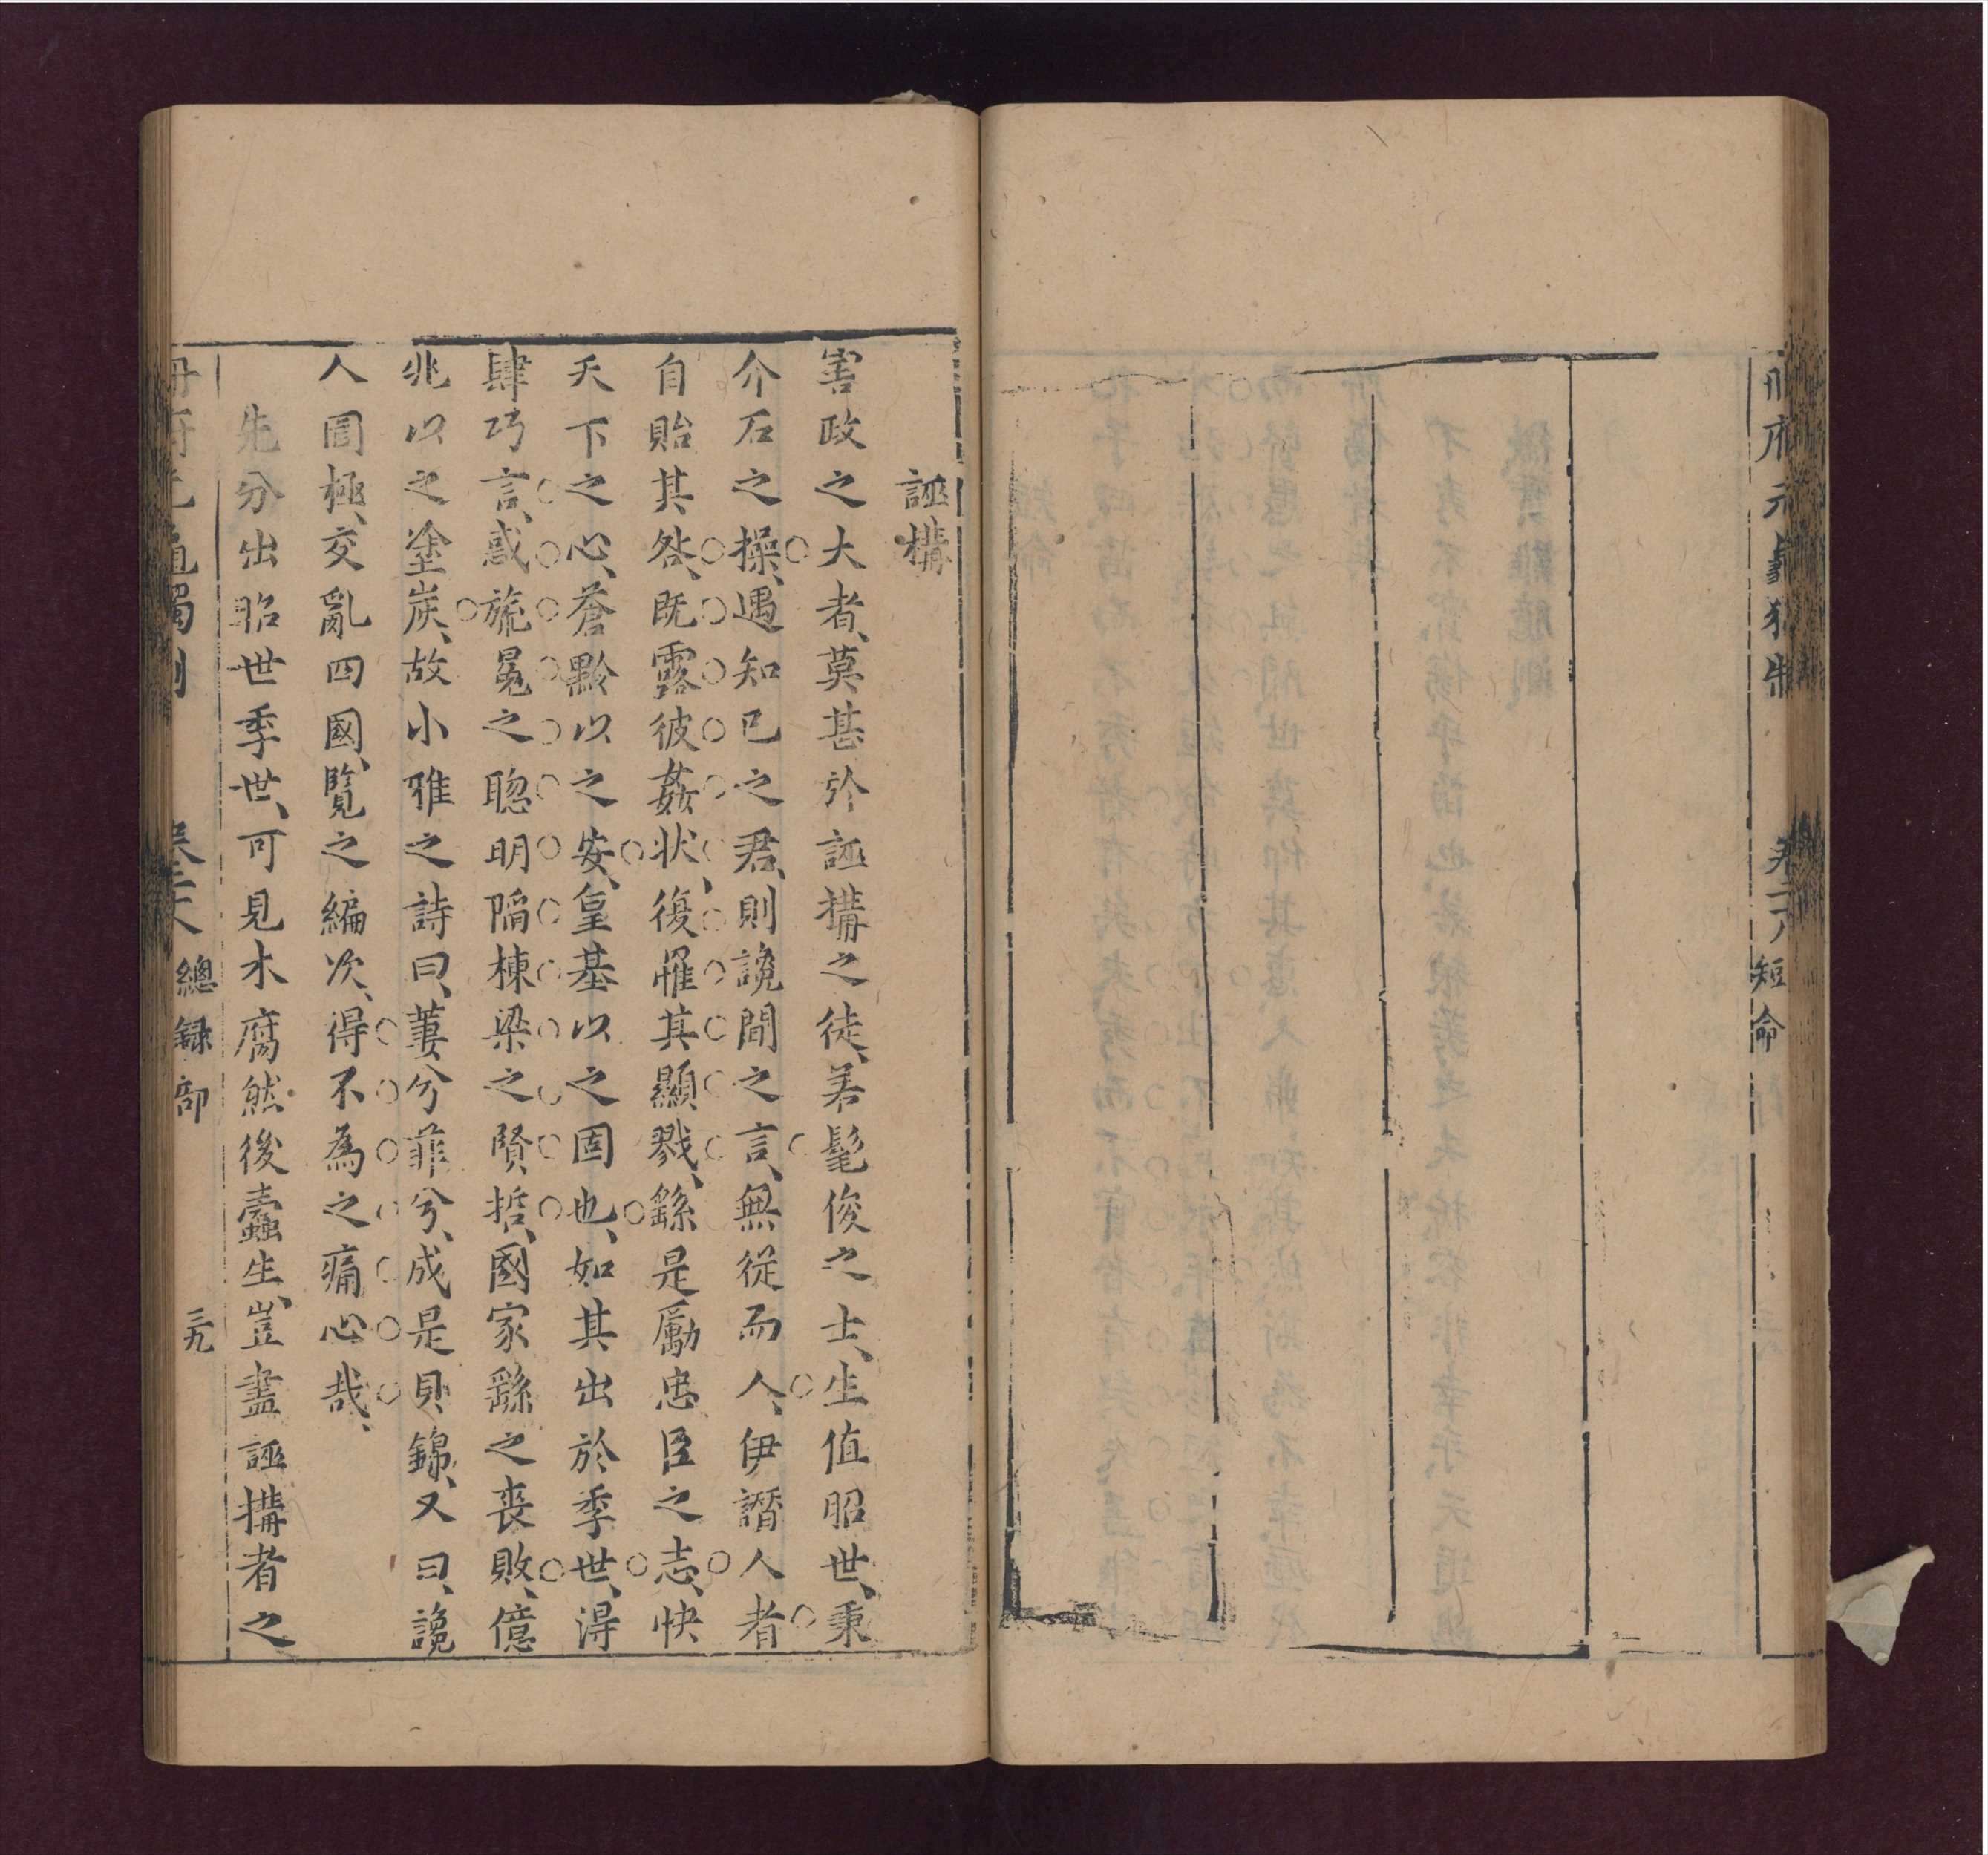 冊府元龜獨制
卷二六
短命
誣構
害政之大者、莫甚於誣搆之徒、若髦俊之士、生值昭世、秉
介石之操、遇知已之君、則讒間之言、無從而人、伊譖人者
自貽其咎、既露彼姦状、復罹其顯戮、繇是勵忠臣之志、快
天下之心、蒼黔以之安、皇基以之固也、如其出於季世、得
肆巧言、惑旒冕之聰明、隔棟梁之賢哲、國家繇之喪敗、億
兆以之塗炭、故小雅之詩曰、萋兮菲兮、成是貝錦、又曰、讒
人罔極、交亂四國、覧之編次、得不為之痛心哉、
先分出昭世季世、可見木腐然後蠹生、豈盡誣搆者之
冊府元龜獨制
卷二六
總録部
三九